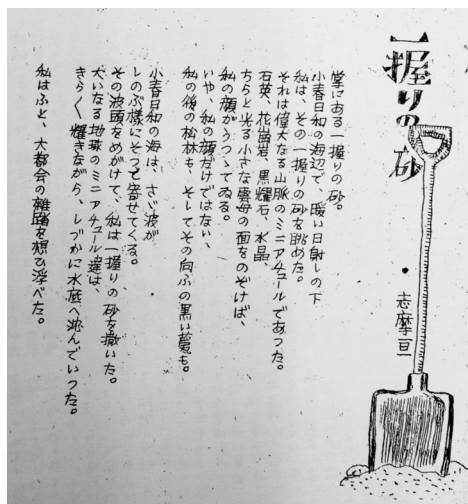 一握りの砂
・志摩亘
掌にある一握りの砂。
小春日和の海辺で、暖い日射しの下
私は、その一握りの砂を眺めた。
それは偉大なる山脈のミニアチュールであつた。
石英、花崗岩、黒耀石、水晶、
ちらと光る小さな雲母の面をのぞけば、
私の顔がうつつてゐる。
いや、私の顔だけではない、
私の後の松林も、そしてその向ふの黒い甍も。
小春日和の海は、さゞ波が
しのぶ様にそつと寄せてくる。
その波頭をめがけて、私は一握りの砂を撒いた。
大いなる地球のミニアチュール達は、
きらきら輝きながら、しづかに水底へ沈んでいつた。
私はふと、大都会の雑踏を想ひ浮べた。